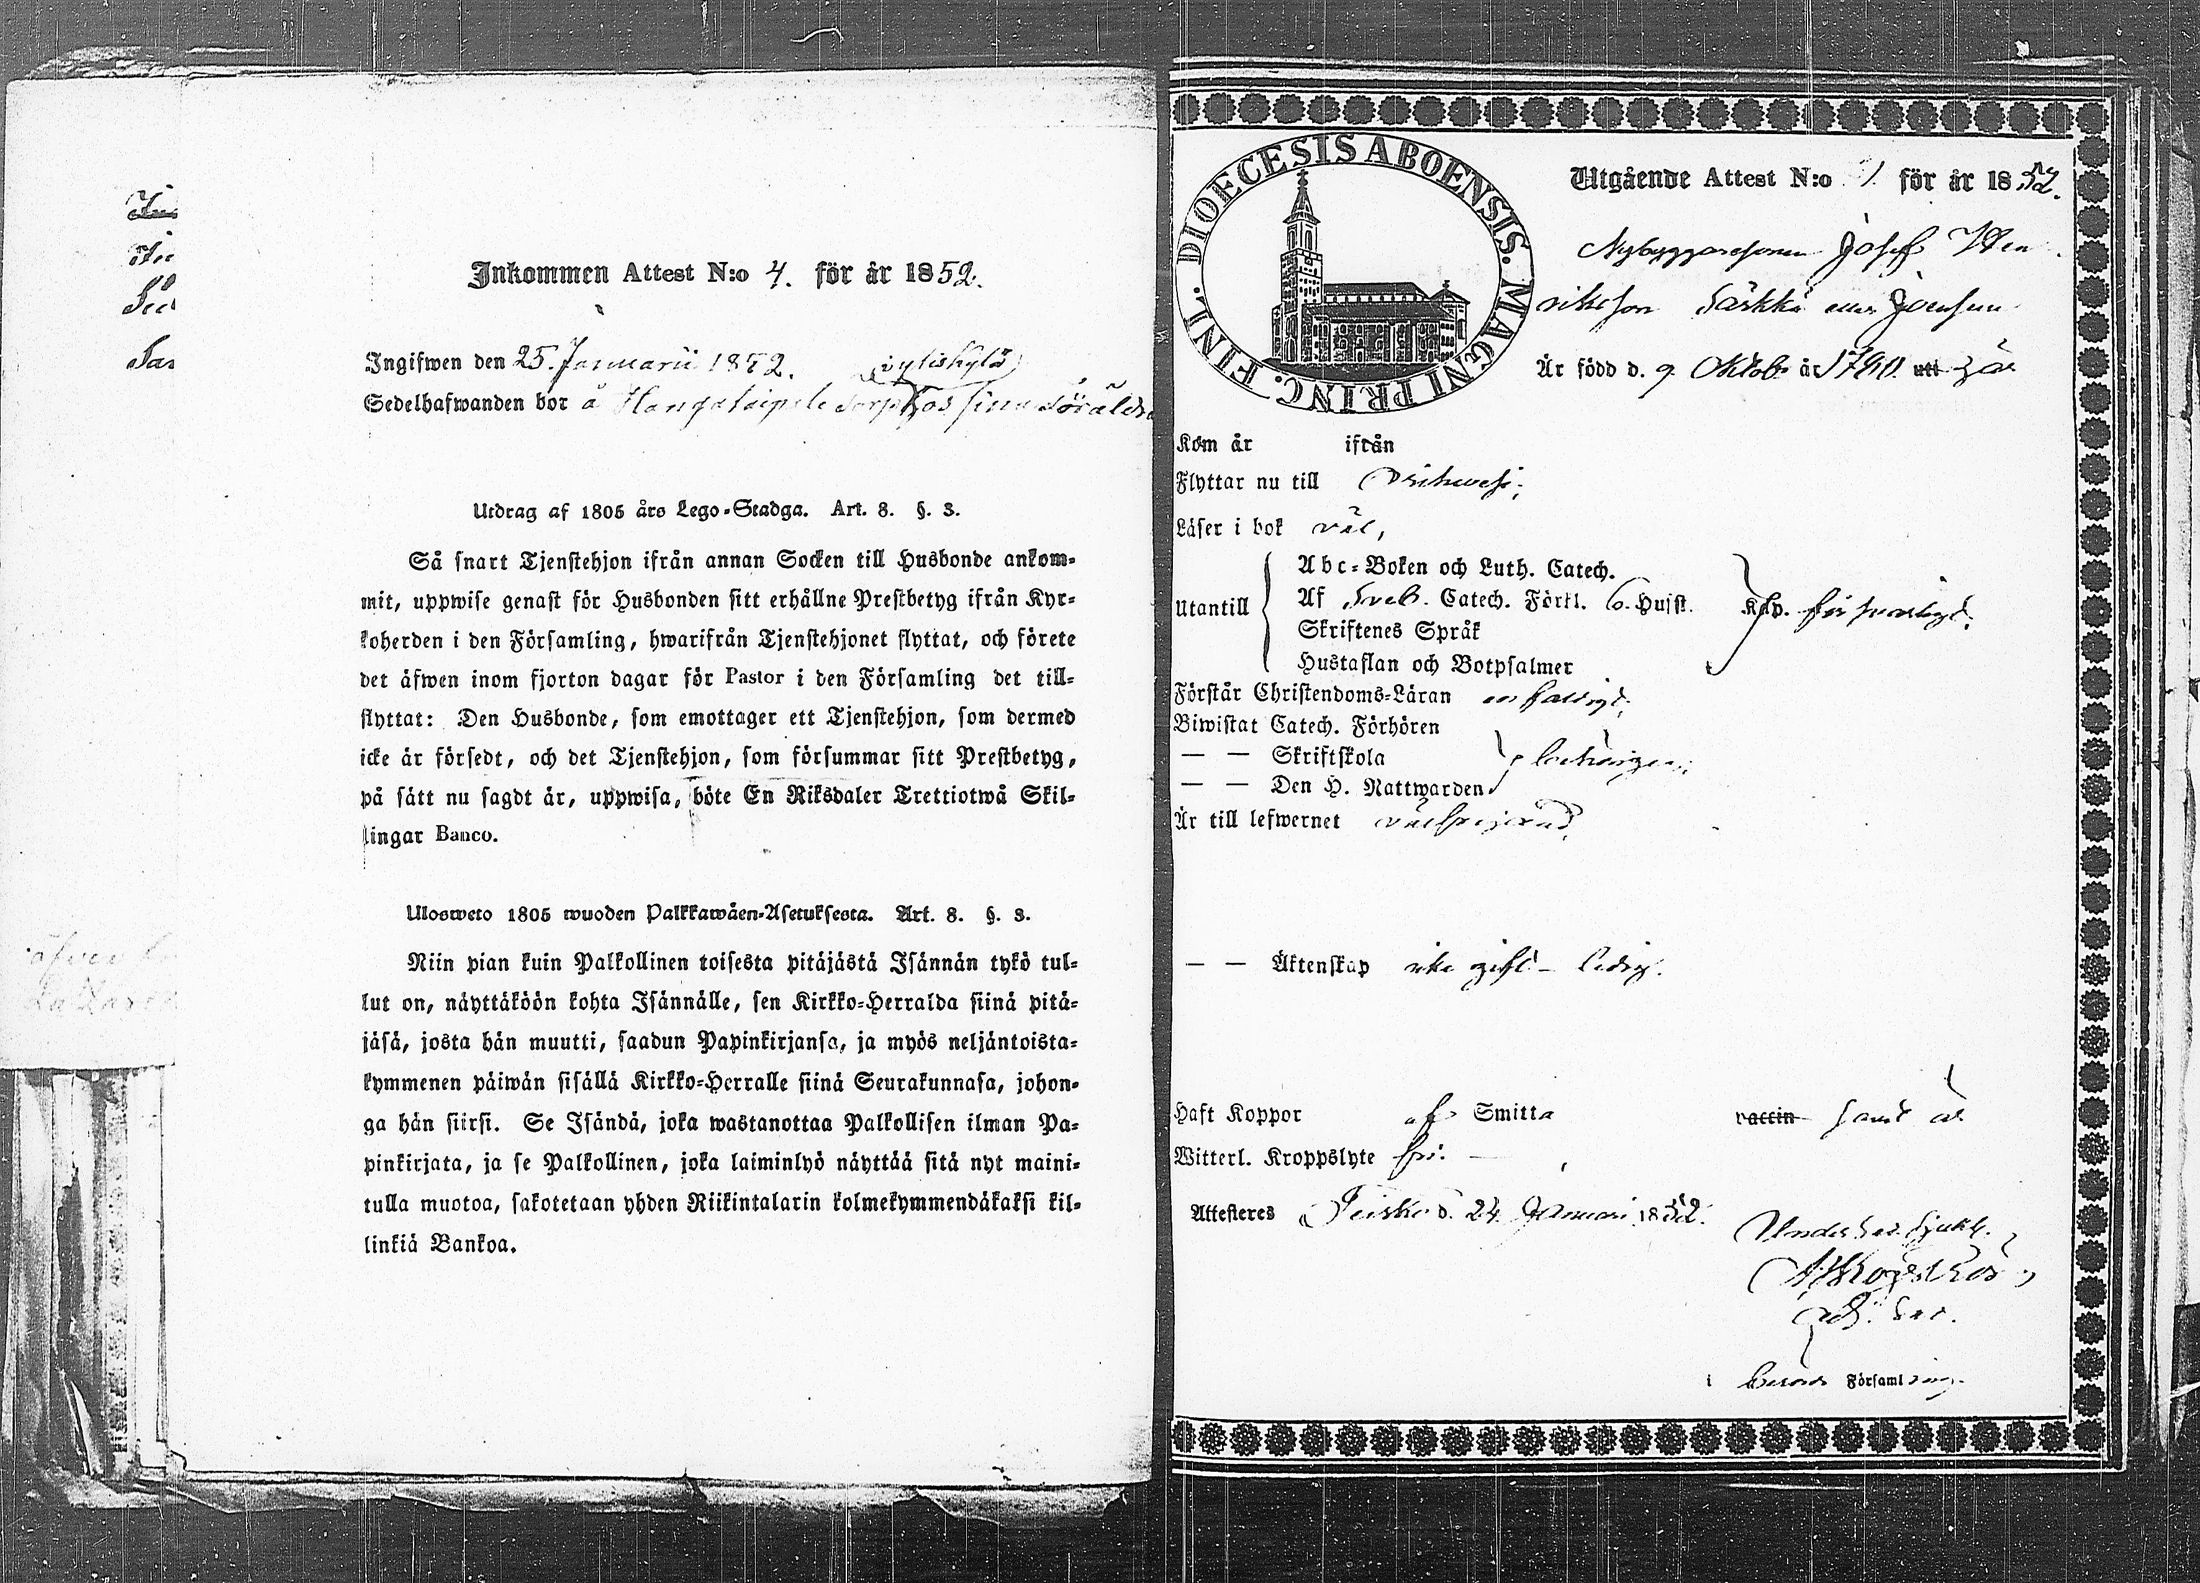 Inkommen Attest N:o 4. för år 1852.
Ingifwen den 25. Januarii 1852.
Sedelhafwanden bor å torp hos sina föräldra
Utdrag af 1805 års Lego-Stadga. Art. 8. §. 3.
Så snart Tjenstehjon ifrån annan Socken till Husbonde ankom-
mit, uppwise genast för Husbonden sitt erhållne Prestbetyg ifrån Kyr-
koherden i den Församling, hwarifrån Tjenstehjonet flyttat, och förete
det äfwen inom fjorton dagar för Pastor i den Församling det till-
flyttat: Den Husbonde, som emottager ett Tjenstehjon, som dermed
icke är försedt, och det Tjenstehjon, som försummar sitt Prestbetyg,
på sätt nu sagdt är, uppwisa, böte En Riksdaler Trettiotwå Skil-
lingar Banco.
Ulosweto 1805 wuoden Palkkawäen-Asetuksesta. Art. 8. §. 3.
Niin pian kuin Palkollinen toisesta pitäjästä Isännän tykö tul-
lut on, näyttäköön kohta Isännälle, sen Kirkko-Herralda siinä pitä-
jäsä, josta hän muutti, saadun Papinkirjansa, ja myös neljäntoista-
kymmenen päiwän sisällä Kirkko-Herralle siinä Seurakunnasa, johon-
ga hän siirsi. Se Isändä, joka wastanottaa Palkollisen ilman Pa-
pinkirjata, ja se Palkollinen, joka laiminlyö näyttää sitä nyt maini-
tulla muotoa, sakotetaan yhden Riikintalarin kolmekymmendäkaksi kil-
linkiä Bankoa.
DIOECESIS ABOENSIS. MAGNI PRINC. FINL.
Utgående Attest N:o för år 1852.
Nybyggaresonen Josef Hen
riksson Särkkä eller
Är född d. 9 Oktob. år 1790. att är
Kom år ifrån
Flyttar nu till Orihwesi;
Läser i bok väl,
Utantill
Abc-Boken och Luth. Catech.
Af Sveb. Catech. Förkl. o. Husst.
Skriftenes Språk
Hustaflan och Botpsalmer
Ksp. försvarligt.
Förstår Christendoms-Läran enfaldigt;
Biwistat Catech. Förhören
— — Skriftskola
— — Den H. Nattwarden
behörigen;
Är till lefwernet välfrejdad,
— — Äktenskap icke gift - ledig.
Haft Koppor af Smitta vaccin samt är
Witterl. Kroppslyte fri.
Attesteres i Teisko d. 24 Januari 1852.
Under
i berörde Församling.